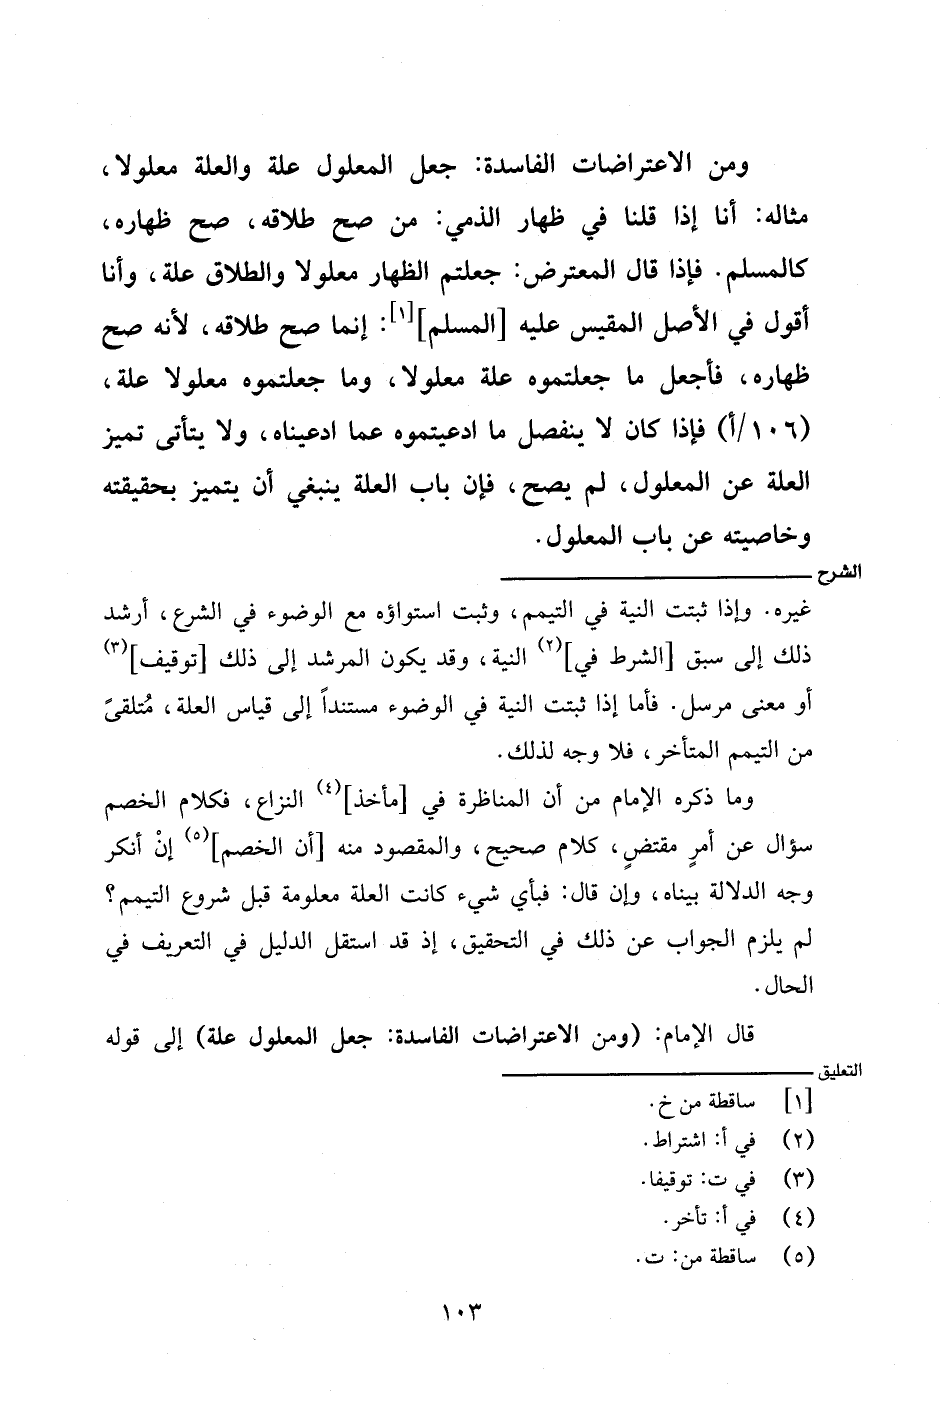 ومن الاعتراضات الفاسدة: جعل المعلول علة والعلة معلولا،
مثاله: أنا إذا قلنا في ظهار الذمي: من صح طلاقه، صح ظهاره،
كالمسلم. فإذا قال المعترض: جعلتم الظهار معلولا والطلاق علة، وأنا
أقول في الأصل المقيس عليه [المسلم][١]: إنما صح طلاقه، لأنه صح
ظهاره، فأجعل ما جعلتموه علة معلولا، وما جعلتموه معلولا علة،
(١٠٦/أ) فإذا كان لا ينفصل ما ادعيتموه عما ادعيناه، ولا يتأتى تميز
العلة عن المعلول، لم يصح، فإن باب العلة ينبغي أن يتميز بحقيقته
وخاصيته عن باب المعلول.
الشرح
غيره. وإذا ثبتت النية في التيمم، وثبت استواؤه مع الوضوء في الشرع، أرشد
ذلك إلى سبق [الشرط في](٢) النية، وقد يكون المرشد إلى ذلك [توقيف](٣)
أو معنى مرسل. فأما إذا ثبتت النية في الوضوء مستنداً إلى قياس العلة، مُتلقىً
من التيمم المتأخر، فلا وجه لذلك.
وما ذكره الإمام من أن المناظرة في [مأخذ](٤) النزاع، فكلام الخصم
سؤال عن أمرٍ مقتضٍ، كلام صحيح، والمقصود منه [أن الخصم](٥) إنْ أنكر
وجه الدلالة بيناه، وإن قال: فبأي شيء كانت العلة معلومة قبل شروع التيمم؟
لم يلزم الجواب عن ذلك في التحقيق، إذ قد استقل الدليل في التعريف في
الحال.
قال الإمام: (ومن الاعتراضات الفاسدة: جعل المعلول علة) إلى قوله
التعليق
[١] ساقطة من خ.
(٢) في أ: اشتراط.
(٣) في ت: توقيفا.
(٤) في أ: تأخر.
(٥) ساقطة من: ت.
١٠٣